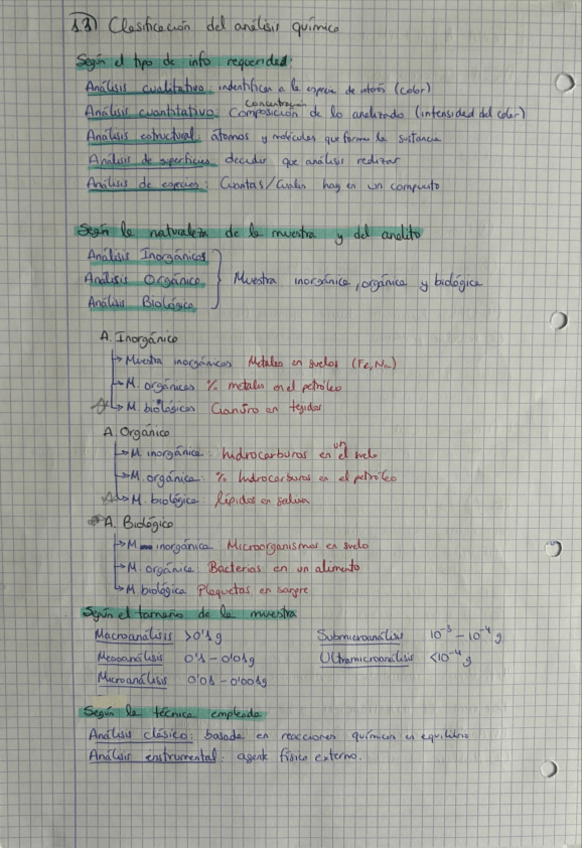 1.3) Clasificación del análisis químico
Según el tipo de info requerida:
Análisis cualitativo: indentifican a la especie de interés (color)
Concentración
Análisis cuantitativo: Composición de lo analizado (intensidad del color)
Análisis estructural: átomos y moléculas que forman la sustancia
Análisis de superficies: decidir que análisis realizar
Análisis de especies: Cuantas/Cuales hay en un compuesto
Según la naturaleza de la muestra y del analito
Análisis Inorgánicos
Análisis Orgánico
Análisis Biológico
Muestra inorgánica, orgánica y biológica
A. Inorgánico
→ Muestra inorgánicas Metales en suelos (Fe, Na)
→ M. orgánicas % metales en el petróleo
→ M. biológicas Cianuro en tejidos
A. Orgánico
→ M. inorgánica: hidrocarburos en un suelo
→ M. orgánica: % hidrocarburos en el petróleo
→ M. biológica: lípidos en saliva
A. Biológico
→ M inorgánica Microorganismos en suelo
→ M. orgánica: Bacterias en un alimento
→ M. biológica Plaquetas en sangre
Según el tamaño de la muestra
Macroanálisis >0'1g
Submicroanálisis 10⁻³ - 10⁻⁴ g
Mesoanálisis 0'1 - 0'01g
Ultramicroanálisis <10⁻⁴ g
Microanálisis 0'01 - 0'001g
Según la técnica empleada
Análisis clásico: basada en reacciones químicas en equilibrio
Análisis instrumental: agente físico externo.